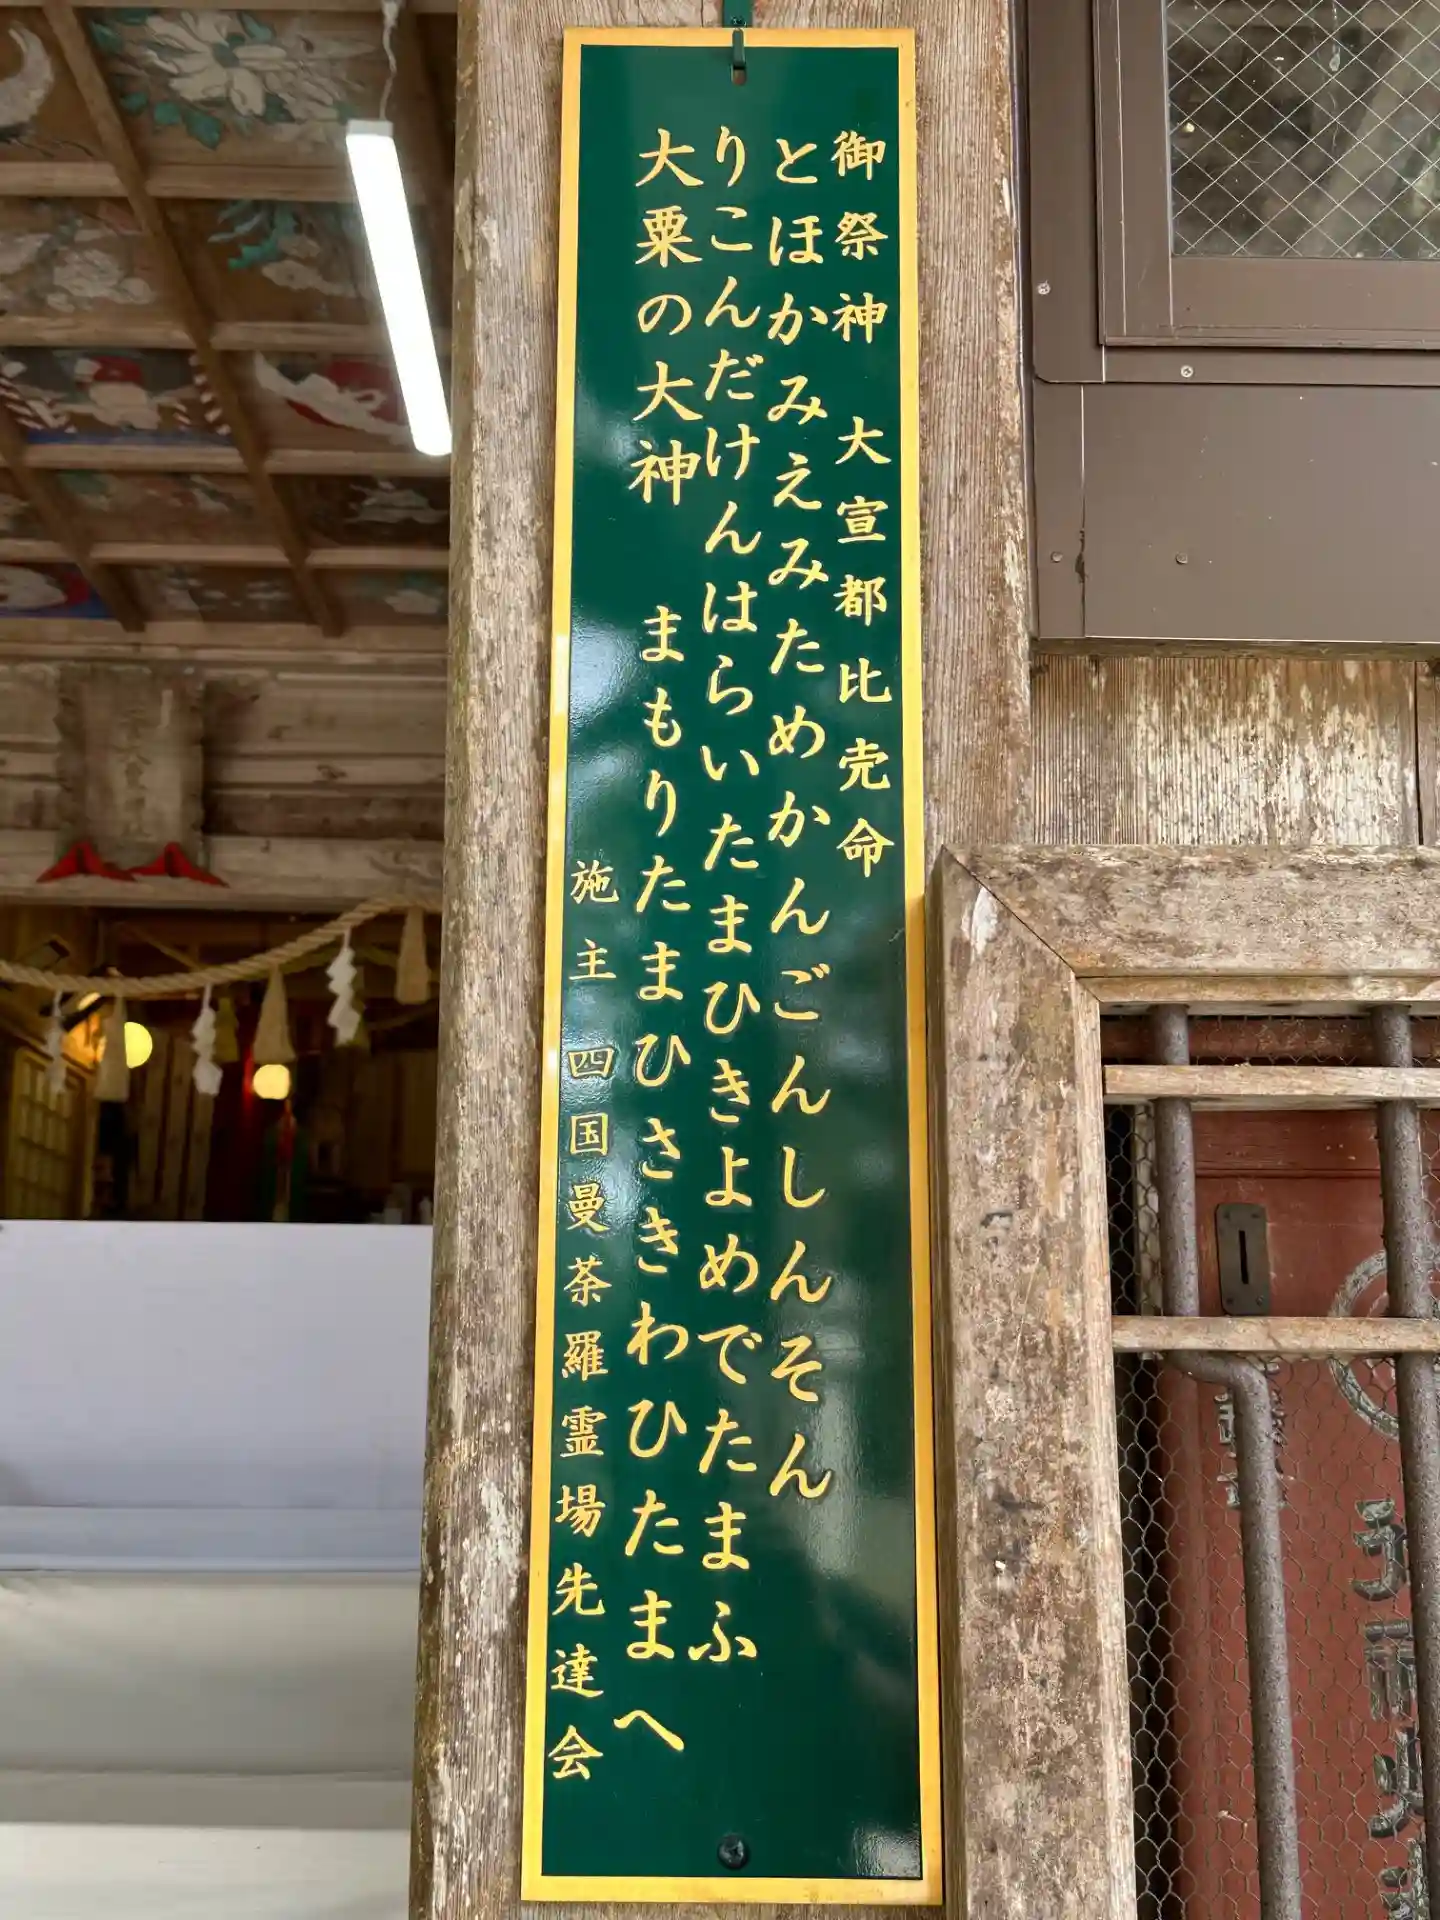 御祭神 大宣都比売命
とほかみえみためかんごんしんそん
りこんだけんはらいたまひきよめでたまふ
大粟の大神 まもりたまひさきわひたまへ
施主 四国曼荼羅霊場先達会